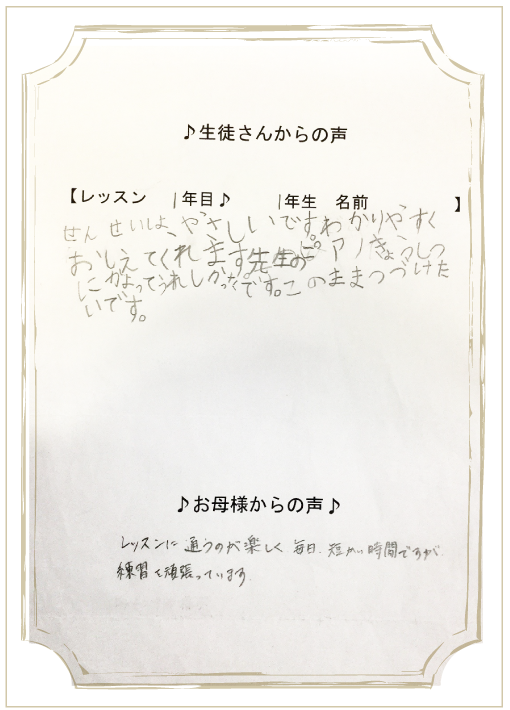 ♪生徒さんからの声
【レッスン 1年目♪ 1年生 名前 】
せんせいは、やさしいです。わかりやすく
おしえてくれます。先生のピアノきょうしつ
にかよってうれしかったです。このままつづけた
いです。
♪お母様からの声♪
レッスンに通うのが楽しく毎日、短かい時間ですが、
練習を頑張っています。